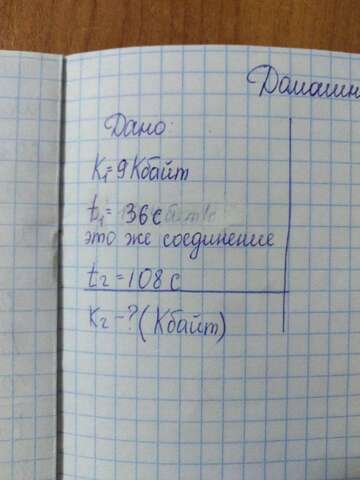 Домашн
Дано:
K₁=9Кбайт
t₁=36с
это же соединение
t₂=108с
K₂-?(Кбайт)